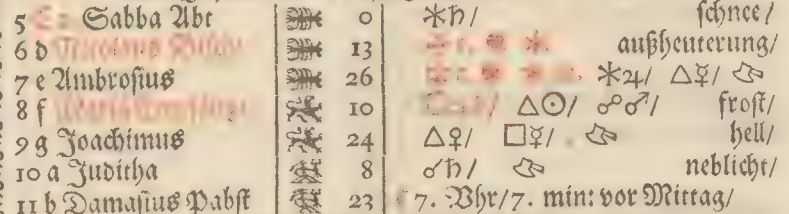 5 c Sabba Abt 0 ⚹♄/ schnee/
6 d Nicolaus Bisch. 13 außheuterung/
7 e Ambrosius 26 ⚹♃/ △☿/
8 f 10 △☉/ ☍♂/ frost/
9 g Joachimus 24 △♀/ □☿/ hell/
10 a Juditha 8 ☌♄/ neblicht/
11 b Damasius Pabst 23 7. Vhr/7. min: vor Mittag/